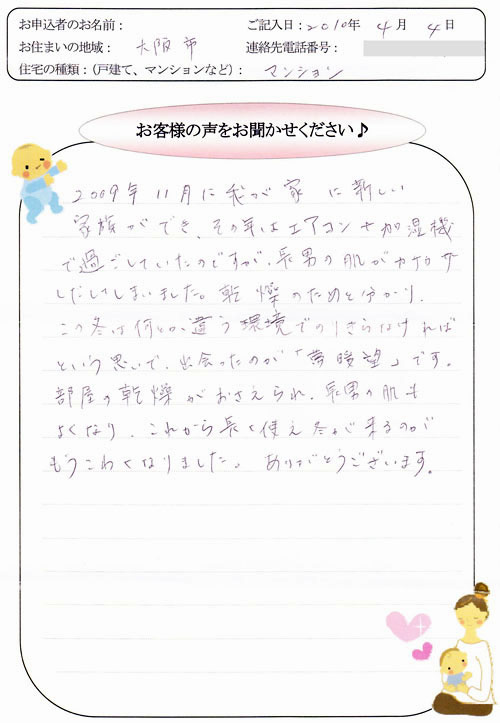 お申込者のお名前： ご記入日：2010年 4月 4日
お住まいの地域： 大阪市 連絡先電話番号：
住宅の種類：（戸建て、マンションなど）： マンション
お客様の声をお聞かせください♪
2009年11月に我が家に新しい
家族ができ、その年はエアコン＋加湿機
で過ごしていたのですが、長男の肌がカサカサ
しだしてしまいました。乾燥のためと分かり、
この冬は何とか違う環境でのりきらなければ
という思いで、出会ったのが「夢暖望」です。
部屋の乾燥がおさえられ、長男の肌も
よくなり、これから長く使え冬が来るのが
もうこわくなりました。ありがとうございます。